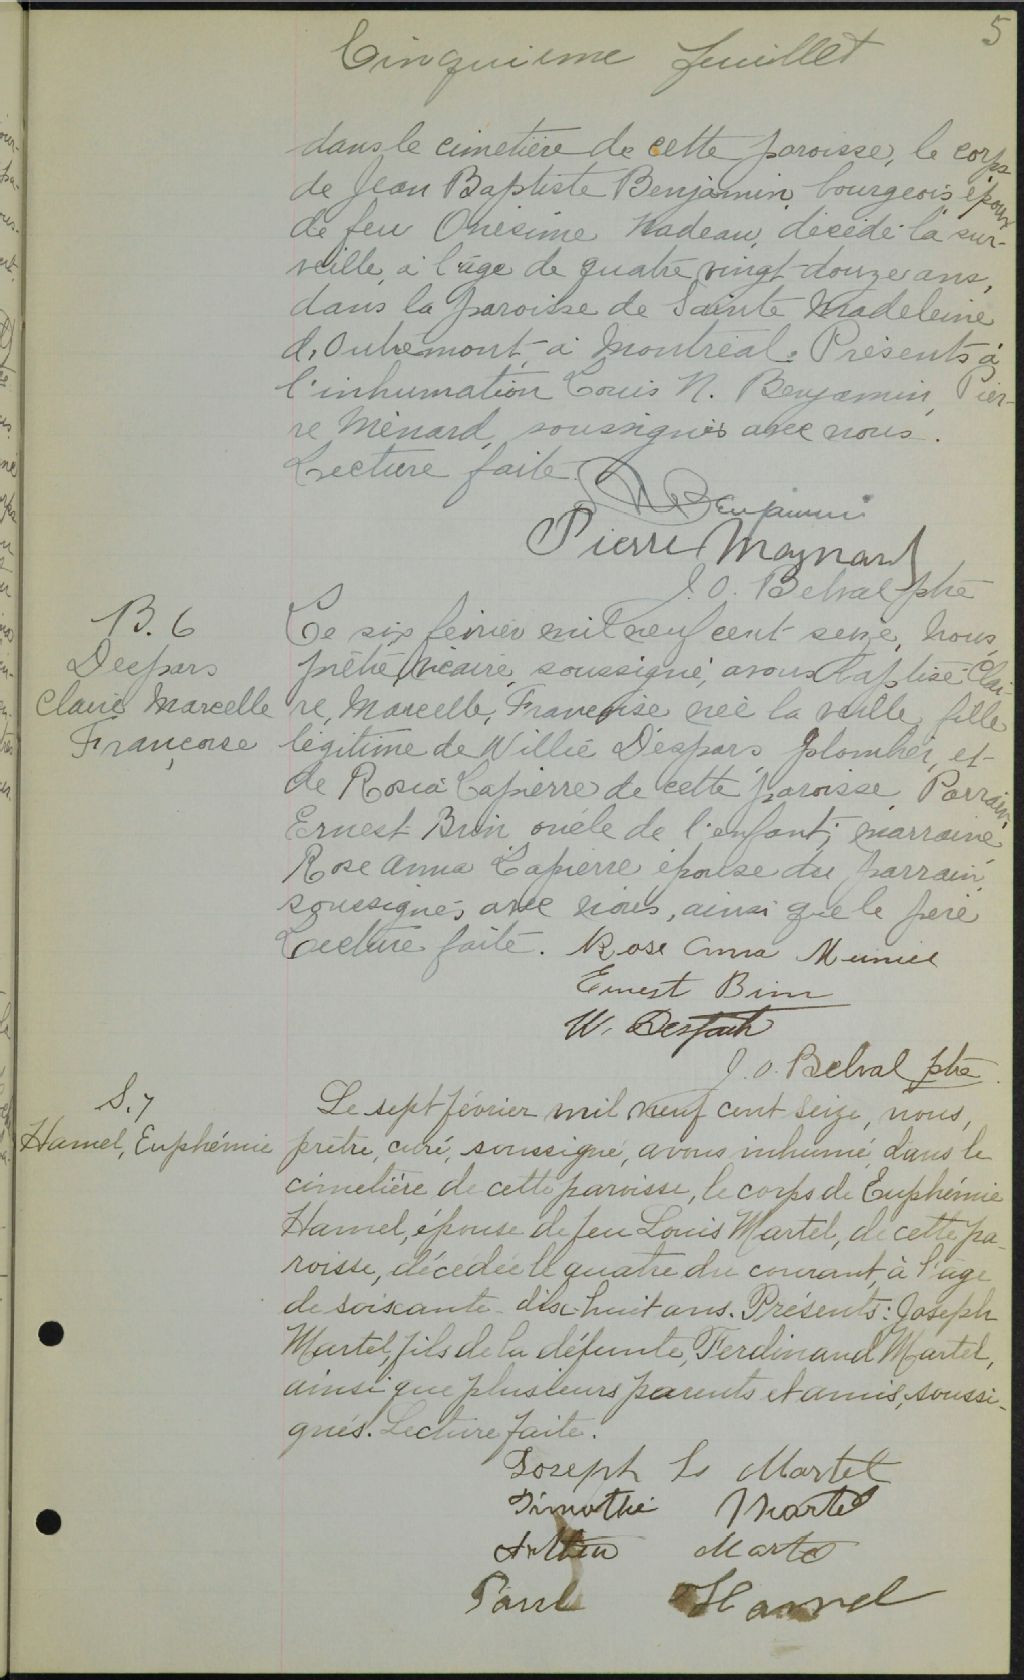 5
Cinquieme feuillet
dans le cimetière de cette paroisse, le corps
de Jean Baptiste Benjamin, bourgeois époux
de feu Onésime Nadeau, décédé l'a sur-
veille, à l'âge de quatre vingt-douze ans,
dans la paroisse de Sainte Madeleine
d'Outremont, à Montréal. Présents à
l'inhumation Louis N. Benjamin, Pier-
re Ménard, soussignés avec nous.
Lecture faite.
N Benjamin
Pierre Maynard
J. O. Belval ptre
B. 6
Despars
Claire Marcelle
Françoise
Le six février mil neuf cent seize, nous,
prêtre, vicaire, soussigné, avons baptisé Clai-
re, Marcelle, Françoise née la veille, fille
légitime de Willie Despars, plombier, et
de Rosia Lapierre de cette paroisse. Parrain,
Ernest Brin, oncle de l'enfant; marraine
Rose Anna Lapierre épouse du parrain,
soussignés avec nous, ainsi que le père
Lecture faite.
Rose Anna
Ernest Brin
W.
J. O. Belval ptre.
S. 7
Hamel, Euphémie
Le sept février mil neuf cent seize, nous,
prêtre, curé, soussigné, avons inhumé, dans le
cimetière de cette paroisse, le corps de Euphémie
Hamel, épouse de feu Louis Martel, de cette pa-
roisse, décédée le quatre du courant, à l'âge
de soixante-dix-huit ans. Présents: Joseph
Martel, fils de la défunte, Ferdinand Martel,
ainsi que plusieurs parents et amis, soussi-
gnés. Lecture faite.
Joseph Ls Martel
Timothé Martel
Martel
Paul Hamel